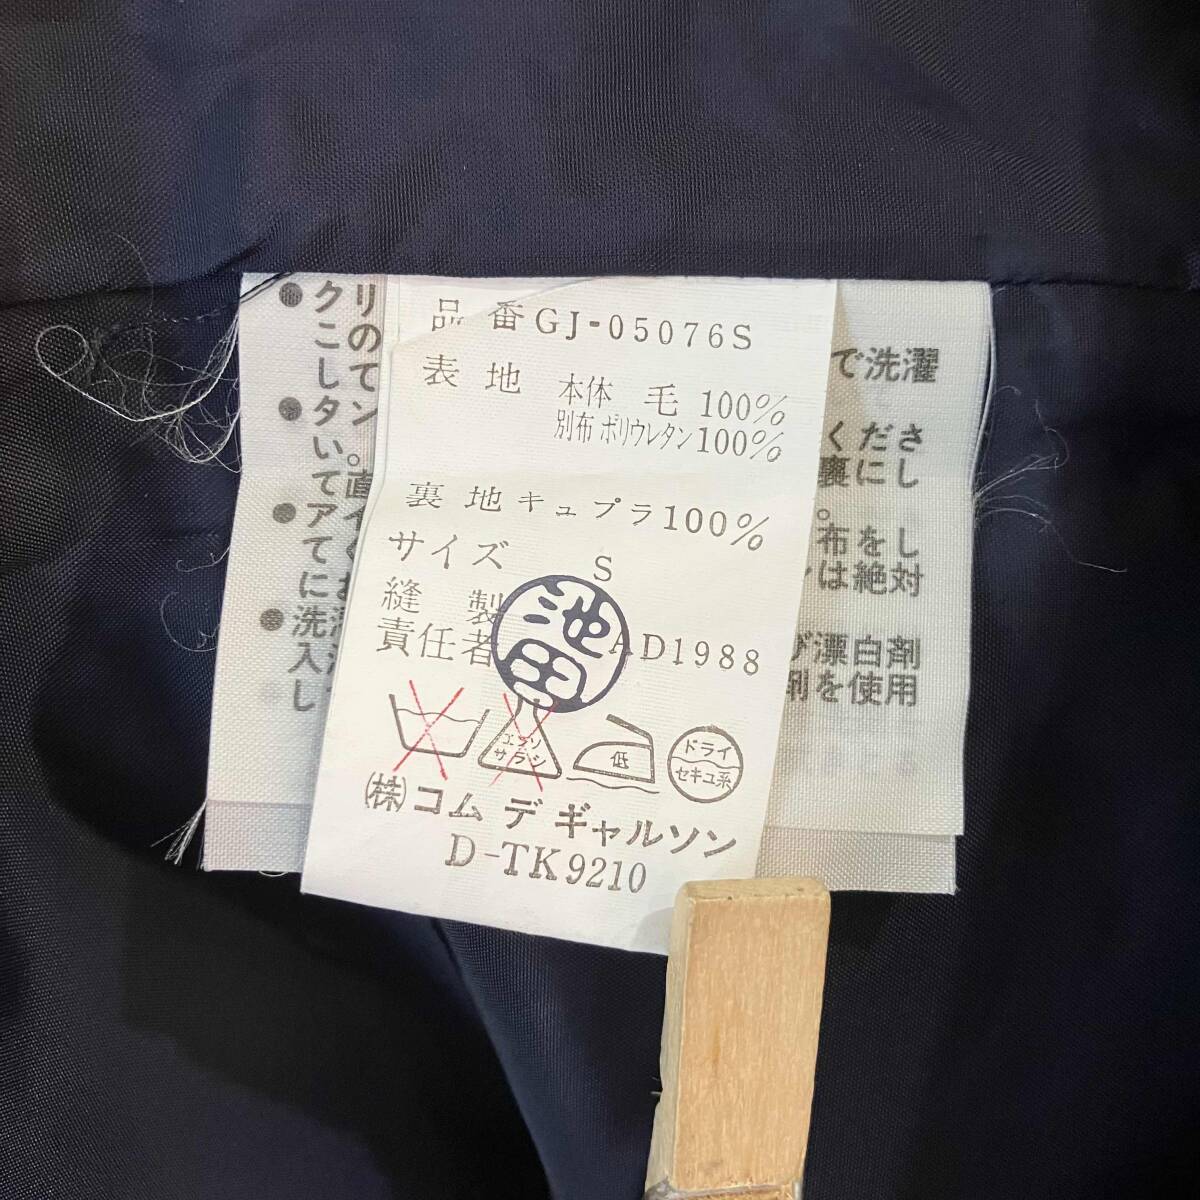 品 番 GJ-05076S
表 地 本体 毛 100%
別布 ポリウレタン 100%
裏 地 キュプラ 100%
サイズ S
縫 製
責任者 池田 AD1988
エンソ
サラシ
低
ドライ
セキユ系
㈱コム デ ギャルソン
D-TK9210
で洗濯
くださ
裏にし
。
布をし
は絶対
漂白剤
剤を使用
● クリ
この
して
● タン
い。
て直
● アイ
てく
に
● 洗濯
入
し